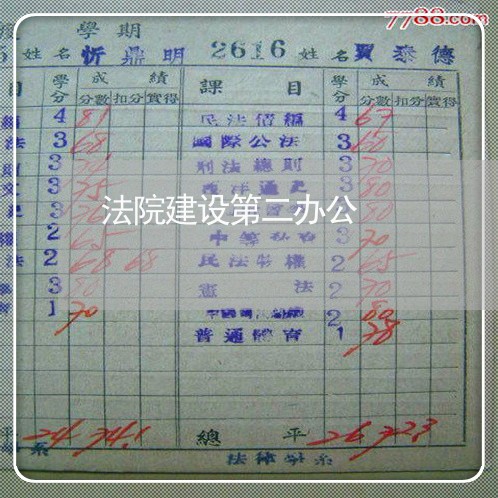 7788.com
學期
5 姓名 忻鼎明 2616 姓名 賈泰德
目 學分 成績 分數 扣分 實得 課目 學分 成績 分數 扣分 實得
4 81 民法債編 4 67
法 3 68 國際公法 3 60
3 刑法總則 3 70
3 75 西洋通史 3 80
法院建设第二办公
2 65 3 70
法 2 68 68 民法物權 2 65
3 80 憲法 2 70
1 70 2 80
普通體育 1 78
平 24 74.1 總平 26 72.3
系 法律學系